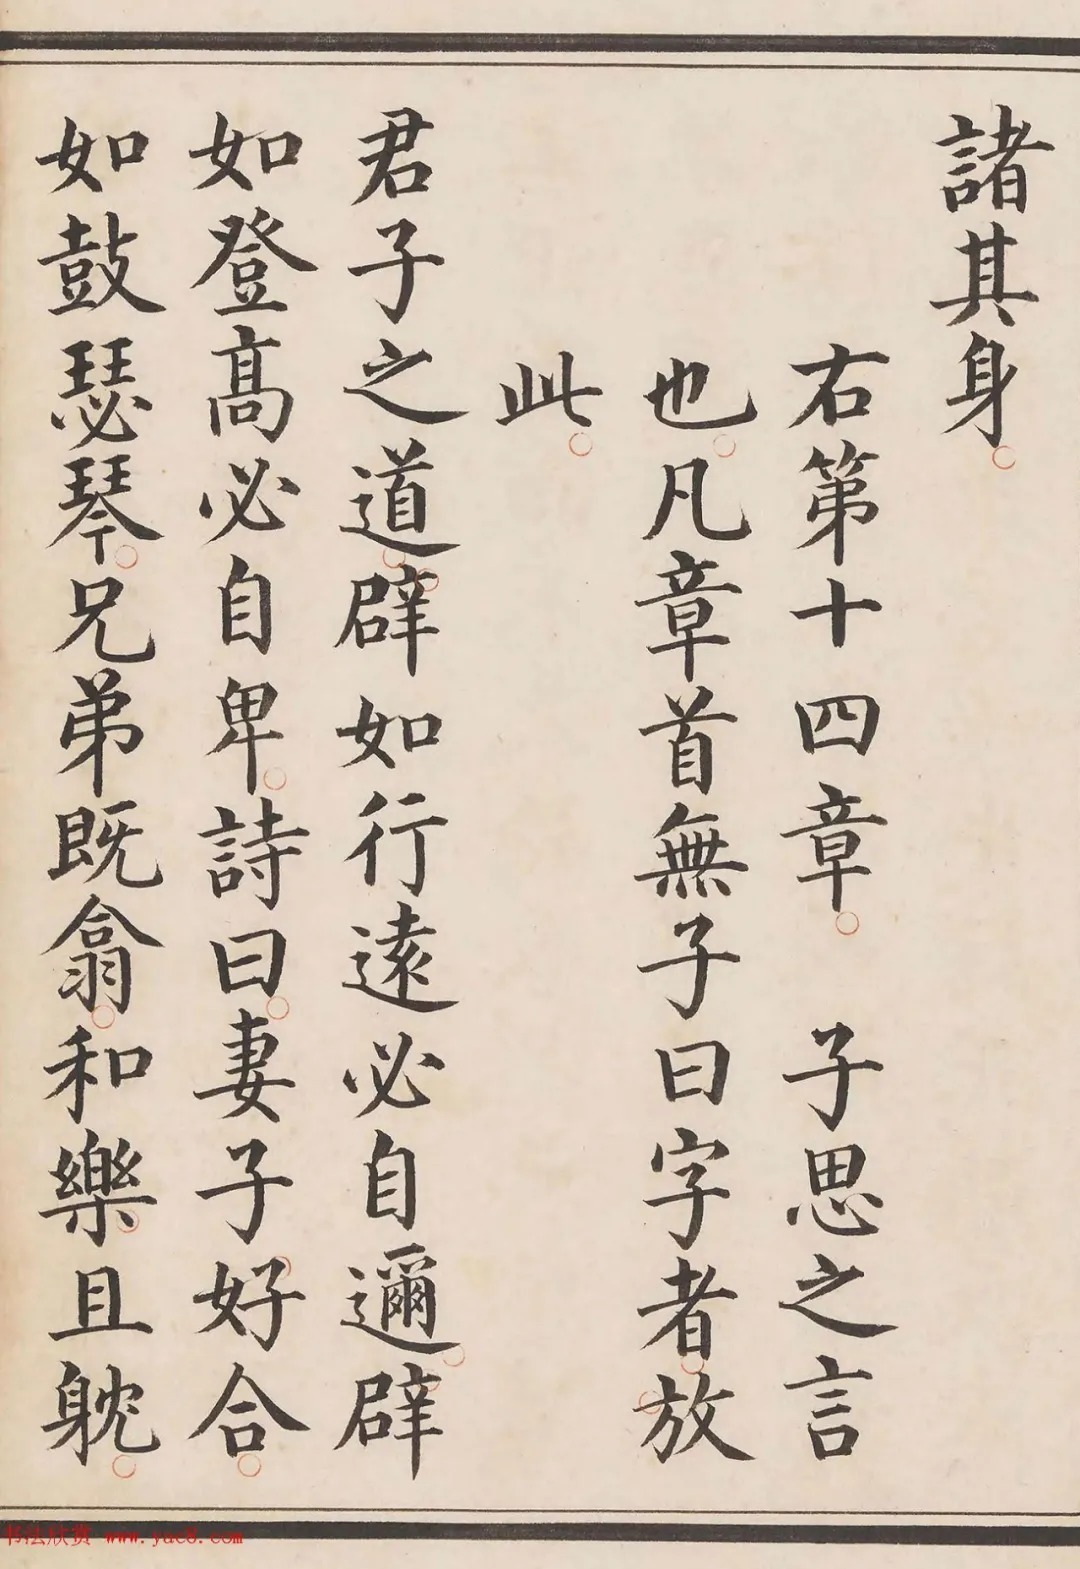 諸其身
右第十四章 子思之言
也凡章首無子曰字者放
此
君子之道辟如行遠必自邇辟
如登高必自卑詩曰妻子好合
如鼓瑟琴兄弟既翕和樂且躭
书法欣赏 www.yac8.com